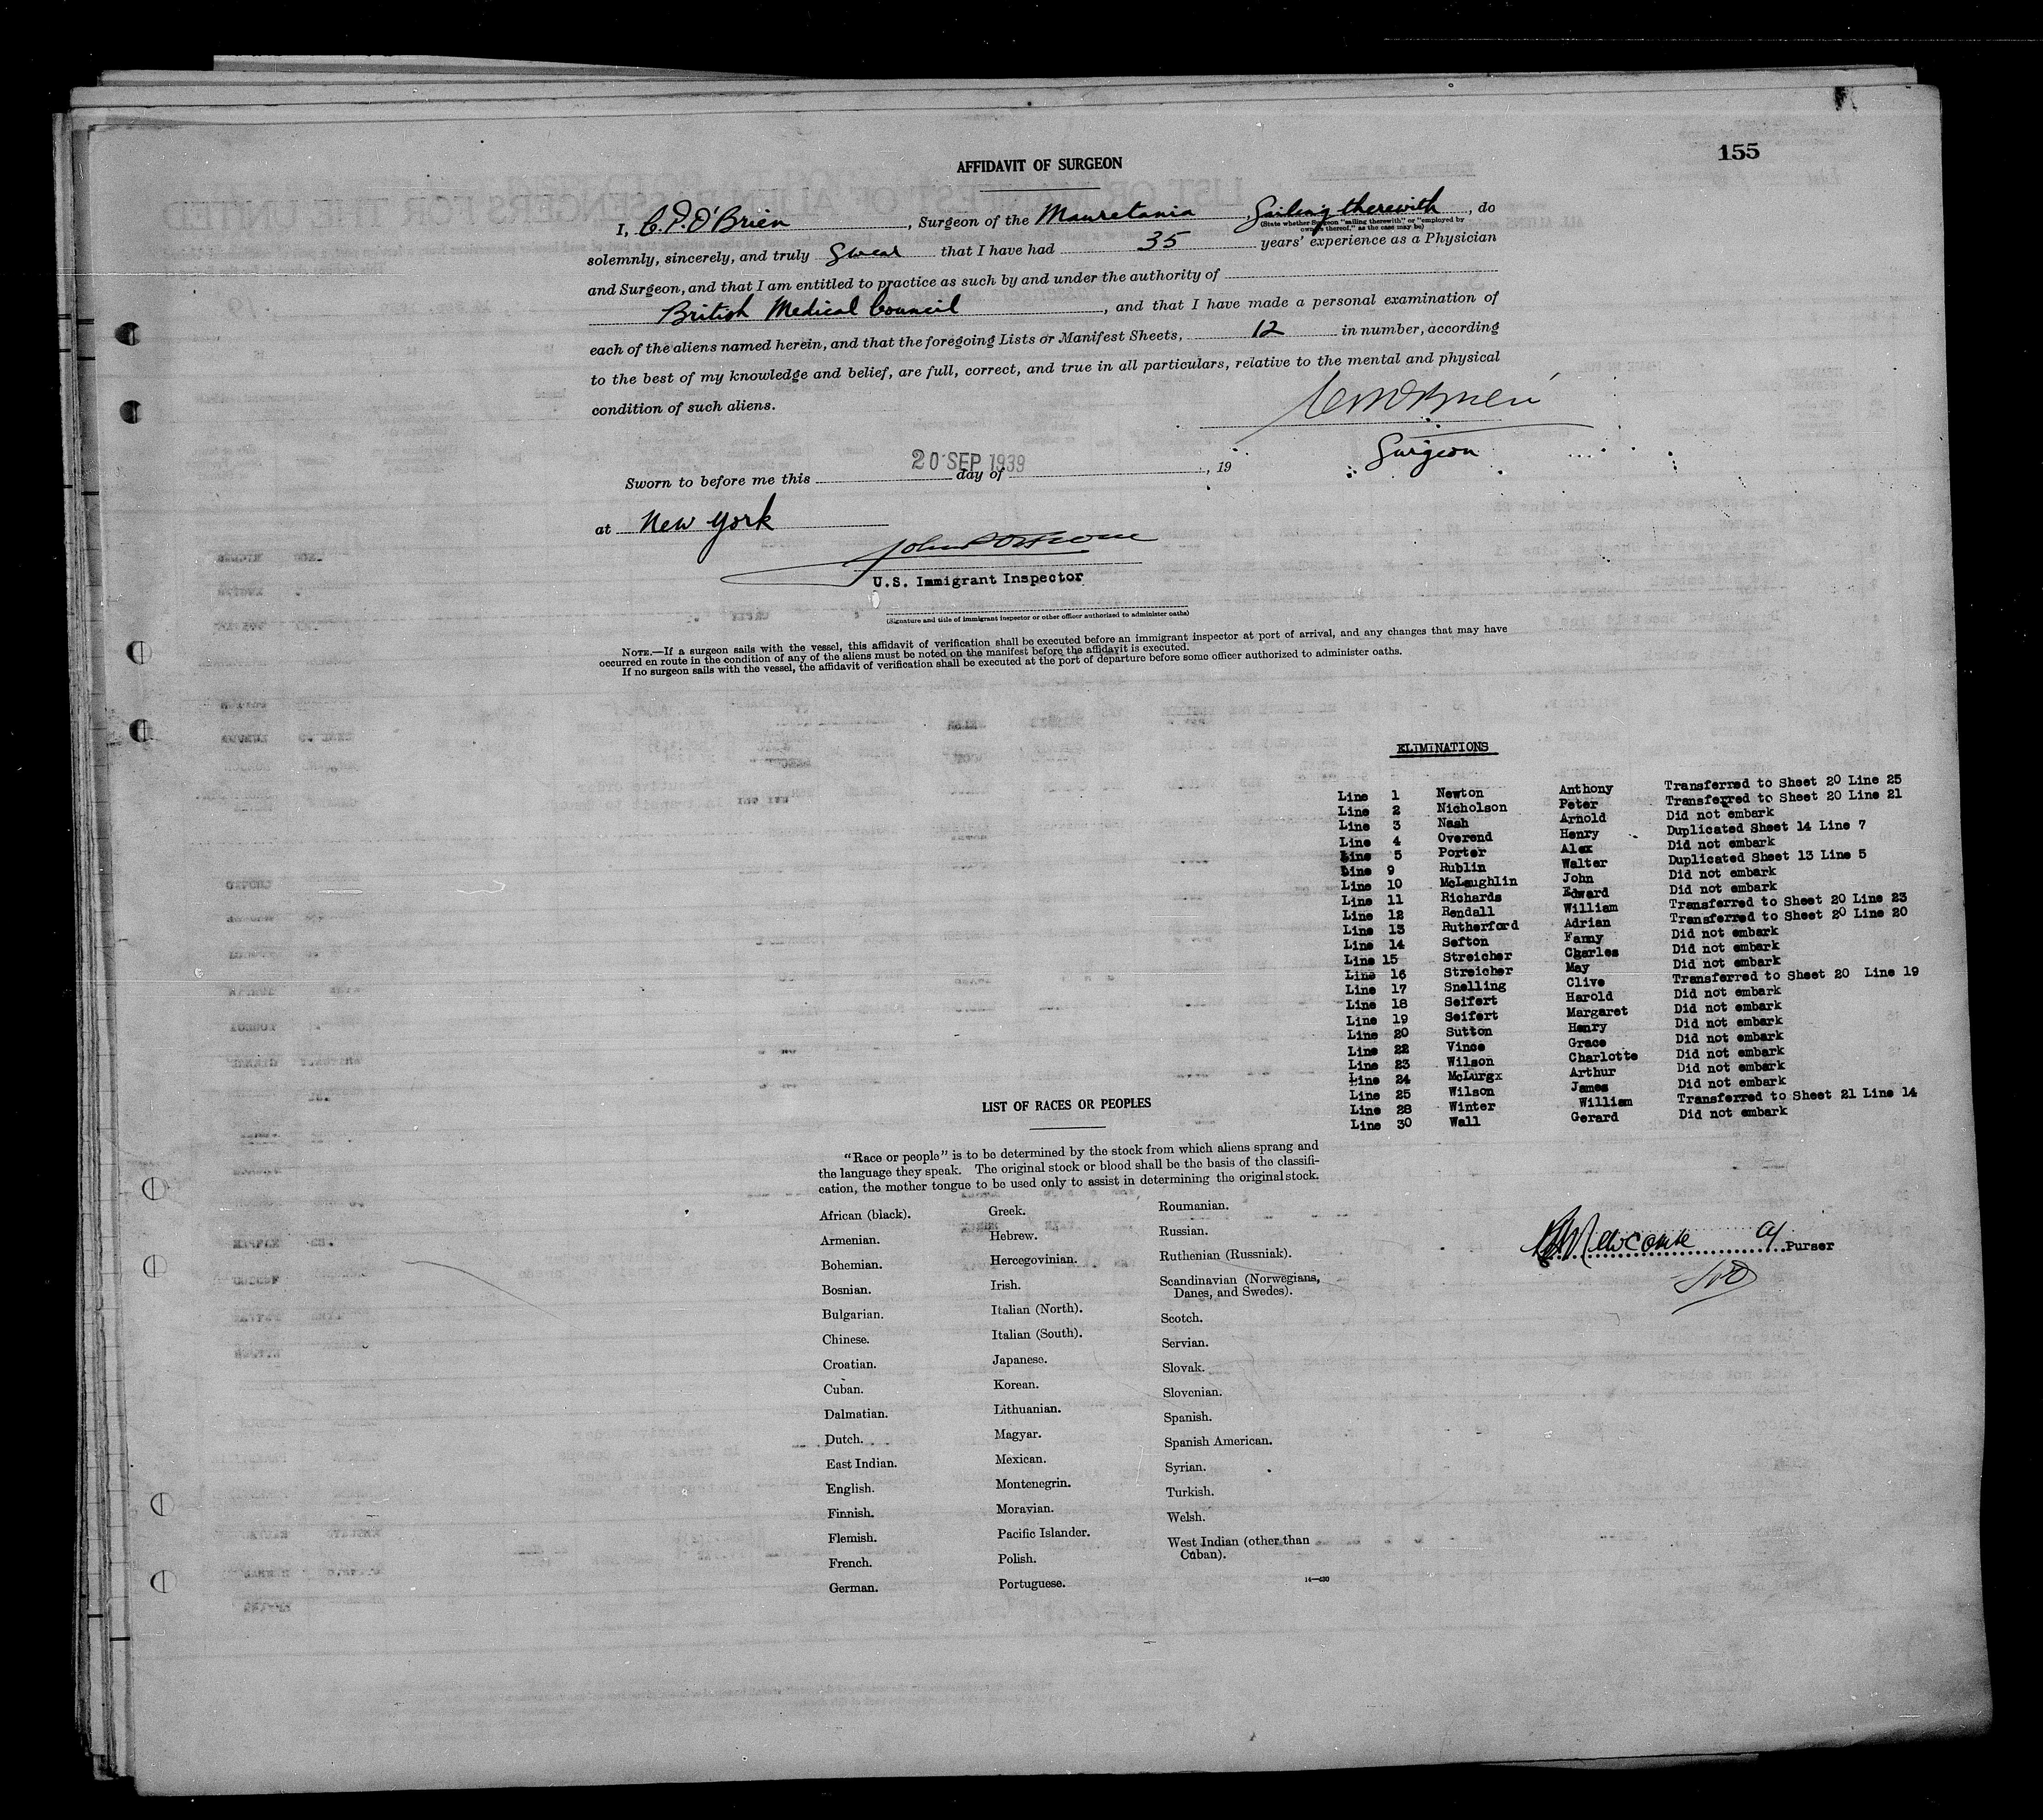 155
AFFIDAVIT OF SURGEON
I, C.P. O'Brien, Surgeon of the Mauretania, Sailing therewith, do
(State whether Surgeon "sailing therewith" or "employed by
owners thereof," as the case may be)
solemnly, sincerely, and truly Swear that I have had 35 years' experience as a Physician
and Surgeon, and that I am entitled to practice as such by and under the authority of
British Medical Council, and that I have made a personal examination of
each of the aliens named herein, and that the foregoing Lists or Manifest Sheets, 12 in number, according
to the best of my knowledge and belief, are full, correct, and true in all particulars, relative to the mental and physical
condition of such aliens.
Surgeon
20 SEP 1939
Sworn to before me this day of , 19
at New York
U.S. Immigrant Inspector
(Signature and title of immigrant inspector or other officer authorized to administer oaths)
NOTE.—If a surgeon sails with the vessel, this affidavit of verification shall be executed before an immigrant inspector at port of arrival, and any changes that may have
occurred en route in the condition of any of the aliens must be noted on the manifest before the affidavit is executed.
If no surgeon sails with the vessel, the affidavit of verification shall be executed at the port of departure before some officer authorized to administer oaths.
ELIMINATIONS
Line 1 Newton Anthony Transferred to Sheet 20 Line 25
Line 2 Nicholson Peter Transferred to Sheet 20 Line 21
Line 3 Nash Arnold Did not embark
Line 4 Overend Henry Duplicated Sheet 14 Line 7
Line 5 Porter Alex Did not embark
Line 9 Rublin Walter Duplicated Sheet 13 Line 5
Line 10 McLaughlin John Did not embark
Line 11 Richards Edward Did not embark
Line 12 Rendall William Transferred to Sheet 20 Line 23
Line 13 Rutherford Adrian Transferred to Sheet 20 Line 20
Line 14 Sefton Fanny Did not embark
Line 15 Streicher Charles Did not embark
Line 16 Streicher May Did not embark
Line 17 Snelling Clive Transferred to Sheet 20 Line 19
Line 18 Seifert Harold Did not embark
Line 19 Seifert Margaret Did not embark
Line 20 Sutton Henry Did not embark
Line 22 Vince Grace Did not embark
Line 23 Wilson Charlotte Did not embark
Line 24 McLurgx Arthur Did not embark
Line 25 Wilson James Did not embark
Line 28 Winter William Transferred to Sheet 21 Line 14
Line 30 Wall Gerard Did not embark
Newcombe
Purser
LIST OF RACES OR PEOPLES
"Race or people" is to be determined by the stock from which aliens sprang and
the language they speak. The original stock or blood shall be the basis of the classifi-
cation, the mother tongue to be used only to assist in determining the original stock.
African (black).
Armenian.
Bohemian.
Bosnian.
Bulgarian.
Chinese.
Croatian.
Cuban.
Dalmatian.
Dutch.
East Indian.
English.
Finnish.
Flemish.
French.
German.
Greek.
Hebrew.
Hercegovinian.
Irish.
Italian (North).
Italian (South).
Japanese.
Korean.
Lithuanian.
Magyar.
Mexican.
Montenegrin.
Moravian.
Pacific Islander.
Polish.
Portuguese.
Roumanian.
Russian.
Ruthenian (Russniak).
Scandinavian (Norwegians,
Danes, and Swedes).
Scotch.
Servian.
Slovak.
Slovenian.
Spanish.
Spanish American.
Syrian.
Turkish.
Welsh.
West Indian (other than
Cuban).
14—430